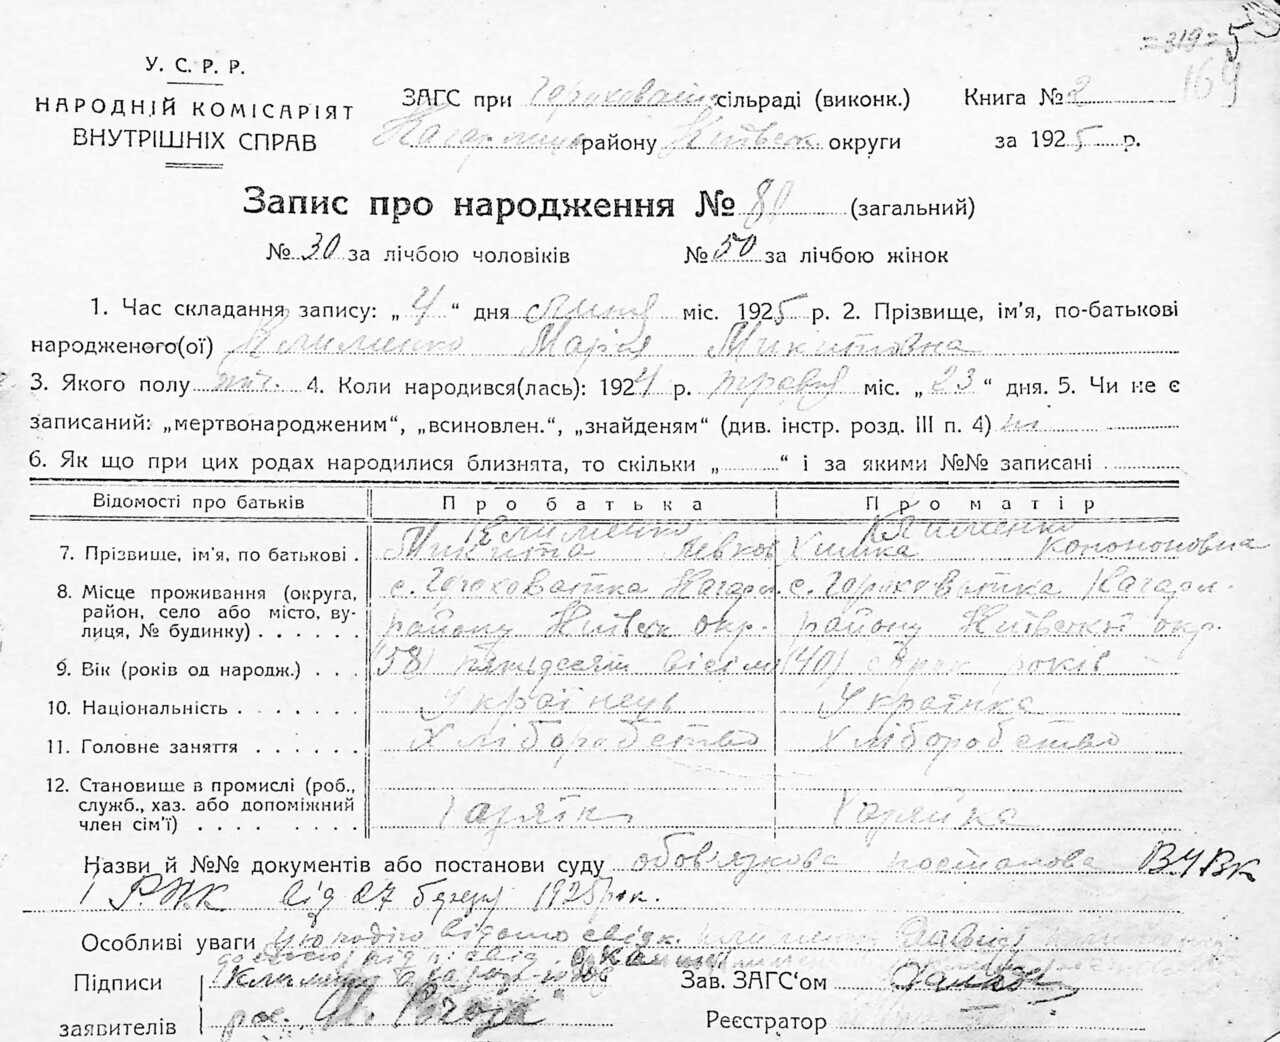 = 319 = 5
169
У. С. Р. Р.
НАРОДНІЙ КОМІСАРІЯТ
ВНУТРІШНІХ СПРАВ
ЗАГС при сільраді (виконк.) Книга № 2
району Київськ округи за 1925 р.
Запис про народження № 80 (загальний)
№ 30 за лічбою чоловіків № 50 за лічбою жінок
1. Час складання запису: „ 4 “ дня міс. 1925 р. 2. Прізвище, ім'я, по-батькові
народженого(ої) Клименко Марія Микитовна
3. Якого полу жіч. 4. Коли народився(лась): 1924 р. травня міс. „ 23 “ дня. 5. Чи не є
записаний: „мертвонародженим“, „всиновлен.“, „знайденям“ (див. інстр. розд. III п. 4) ні
6. Як що при цих родах народилися близнята, то скільки „ “ і за якими №№ записані
Відомості про батьків Про батька Про матір
Клименко Клименко
7. Прізвище, ім'я, по батькові . Микита Левков Химка Кононовна
8. Місце проживання (округа, с. Гороховатка Кагарл. с. Гороховатка Кагарл.
район, село або місто, ву-
лиця, № будинку) . . . . . . району Київськ окр. району Київської окр.
9. Вік (років од народж.) . . . (58) пятьдесят вісім (40) сорок років
10. Національність . . . . . . . Українець Українка
11. Головне заняття . . . . . . Хліборобство Хліборобство
12. Становище в промислі (роб.,
служб., хаз. або допоміжний
член сім'ї) . . . . . . . . Хазяїн Хазяйка
Назви й №№ документів або постанови суду обов'язкова постанова ВУВК
і Р.Н.К від 27 березня 1925 рок.
Особливі уваги
Підписи
заявителів
Зав. ЗАГС'ом
Реєстратор